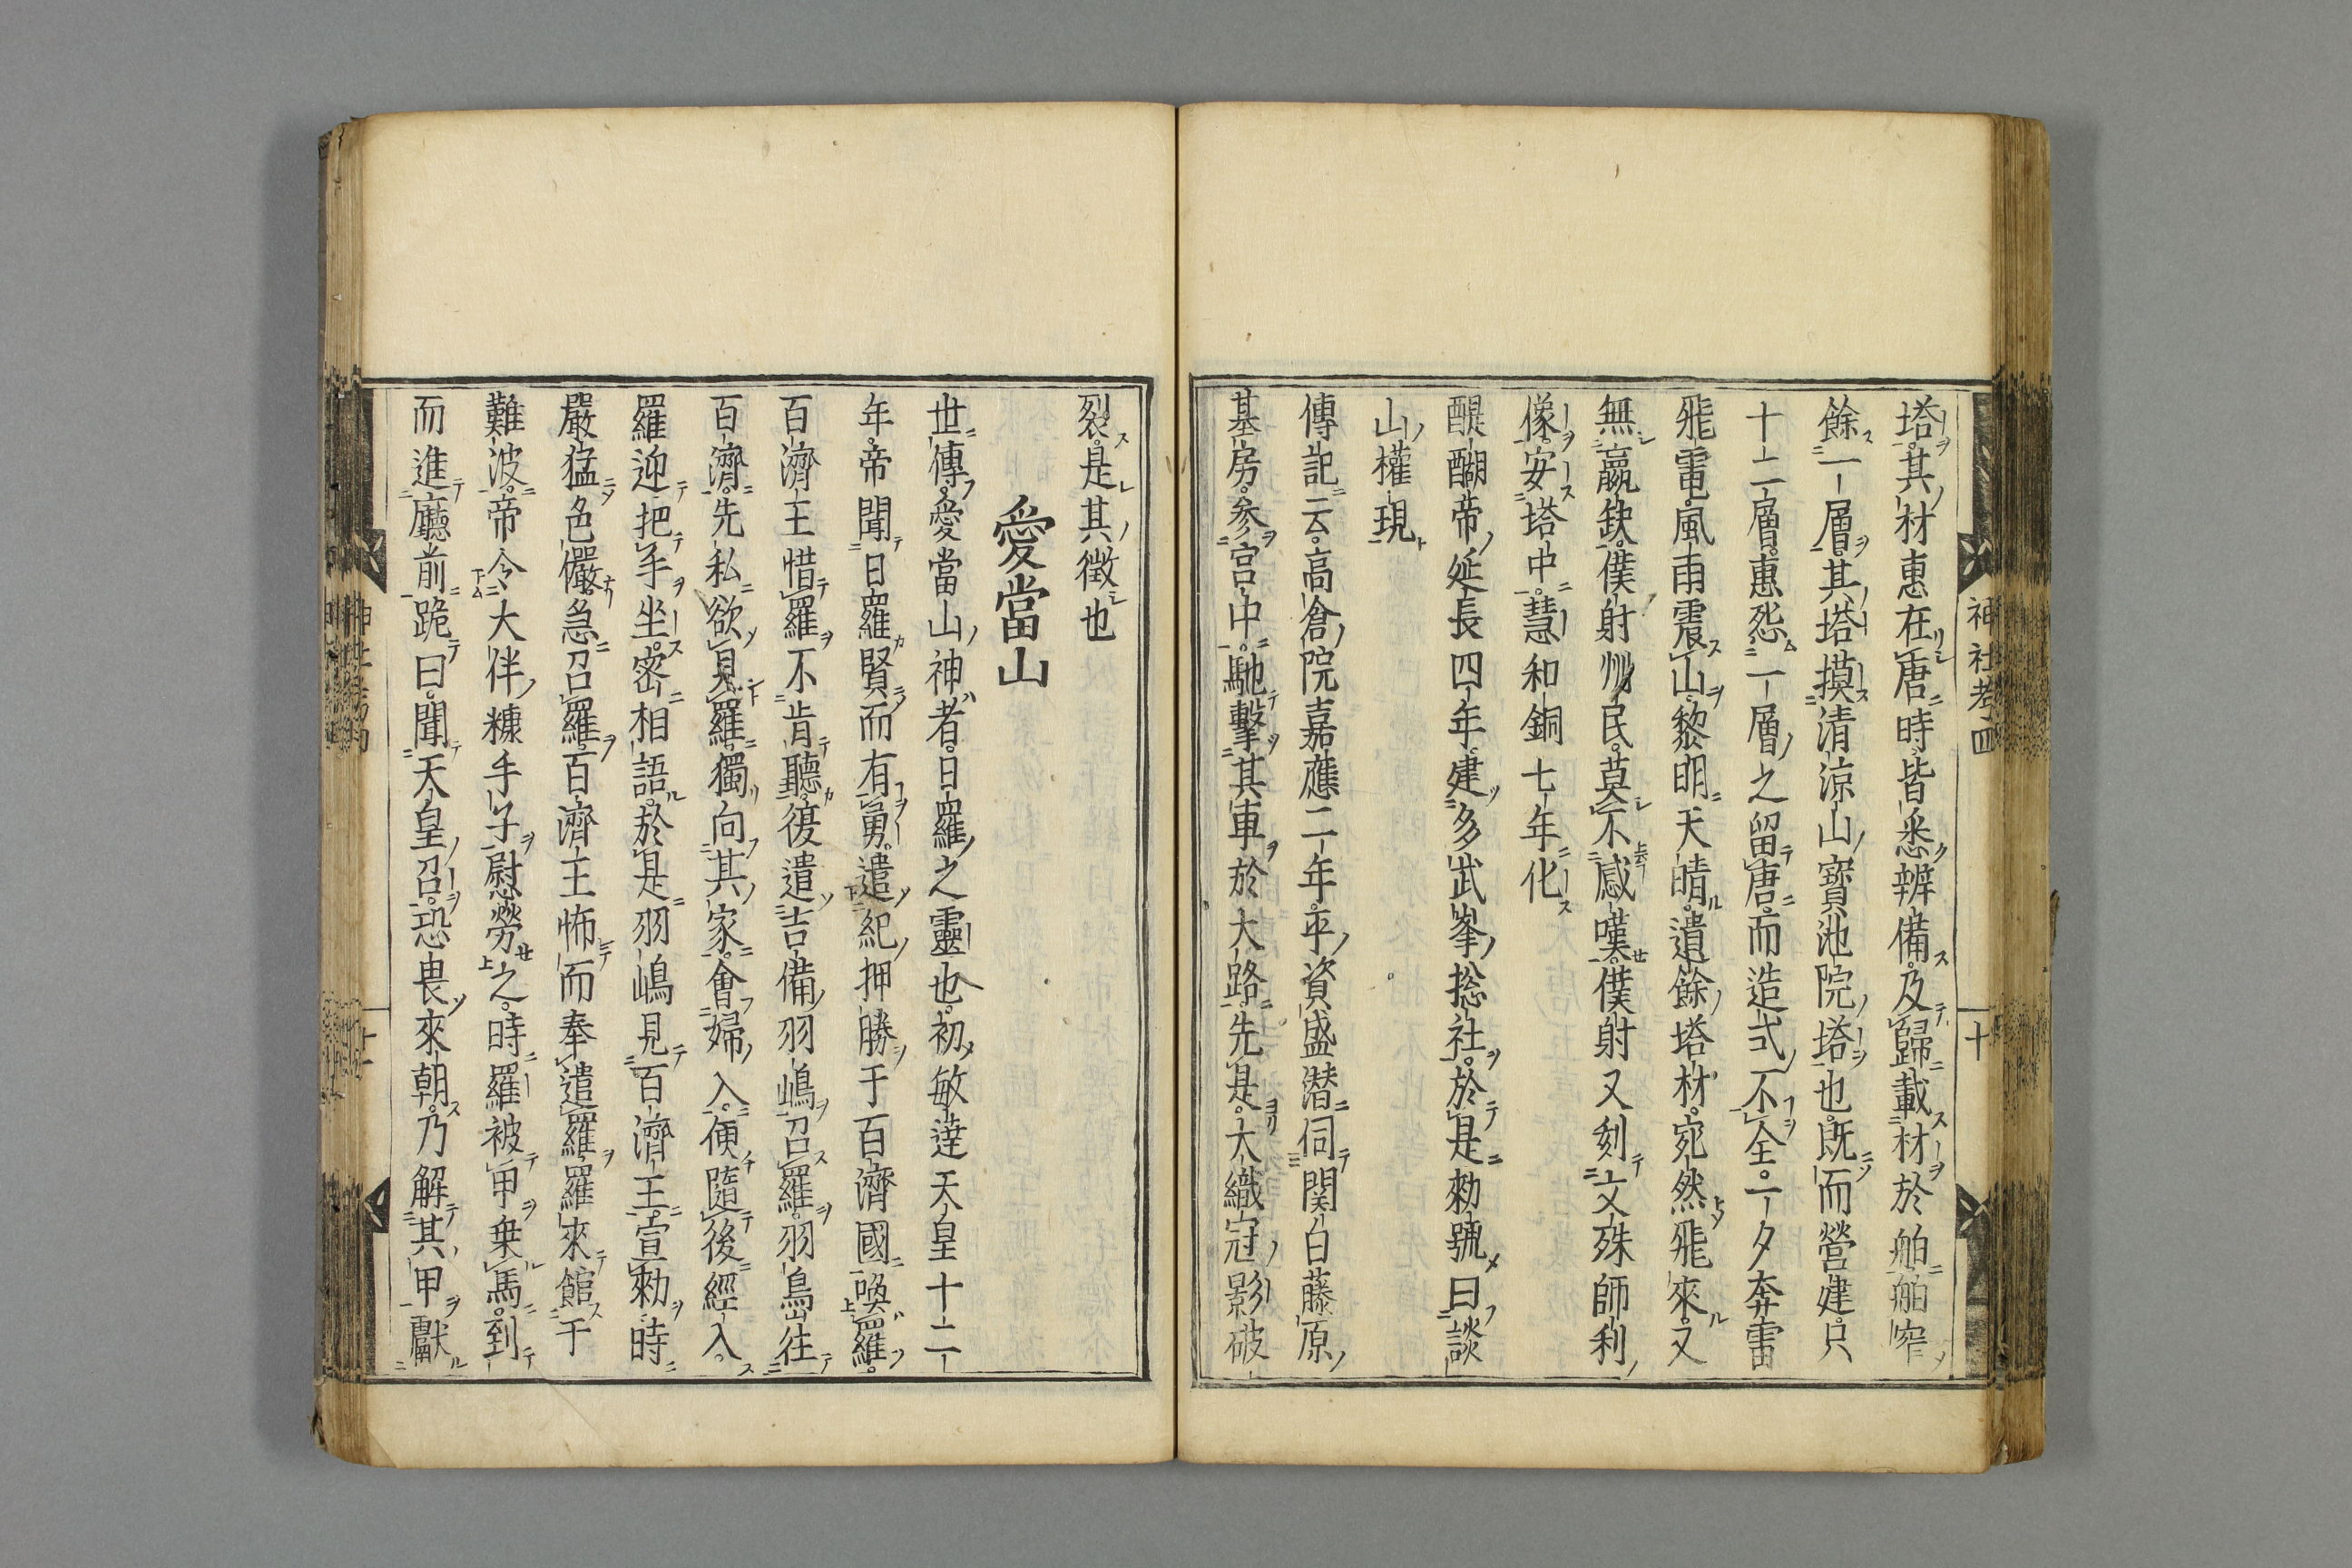 塔其材惠在唐時皆悉辨備及歸載材於舶舶窄
餘一層其塔摸清涼山寶池院塔也既而營建只
十二層惠怨一層之留唐而造式不全一夕奔雷
飛電風雨震山黎明天晴遺餘塔材宛然飛來又
無嬴缺僕射州民莫不感嘆僕射又刻文殊師利
像安塔中慧和銅七年化
醍醐帝延長四年建多武峯捴社於是勅號曰談
山權現
傳記云高倉院嘉應二年平資盛潛伺関白藤原
基房参宮中馳擊其車於大路先是大織冠影破
神社考四
十
裂是其徵也
愛當山
世傳愛當山神者日羅之靈也初敏達天皇十二
年帝聞日羅賢而有勇遣紀押勝于百濟國喚羅
百濟王惜羅不肯聽復遣吉備羽嶋召羅羽嶌往
百濟先私欲見羅獨向其家會婦入便隨後經入
羅迎把手坐密相語於是羽嶋見百濟王宣勅時
嚴猛色儼急召羅百濟王怖而奉遣羅羅來館于
難波帝令大伴糠手子慰勞之時羅被甲乗馬到
而進廳前跪曰聞天皇召恐畏來朝乃解其甲獻